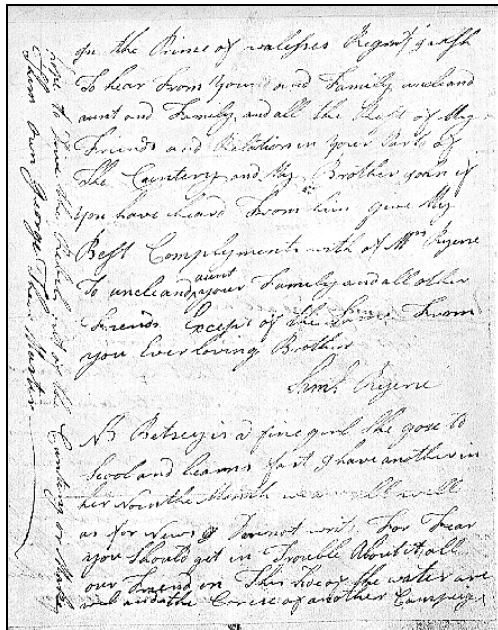 In the Prince of walesses Regmt I wish
To hear From You and Family uncle and
aunt and Family and all the Rest of My
Friends and Relation in your Parts of
The Cuntery and My Brother John if
you have heard From him give My
Best Complyments with of Mrs Ryerse
To uncle and aunt your Family and all other
Friends Except of the Same From
you Ever loving Brother
Saml Ryerse
NB Betsey is a fine girl She gose to
Scool and learns fast I have another in
her Month we are all well
as for News I not write For Fear
you Should get in Trouble About it all
our Friend in This Side of the water are
well and the of another Campaign
hope to Drive the Rebels out of the Cuntery or Make
Them own George Their Master